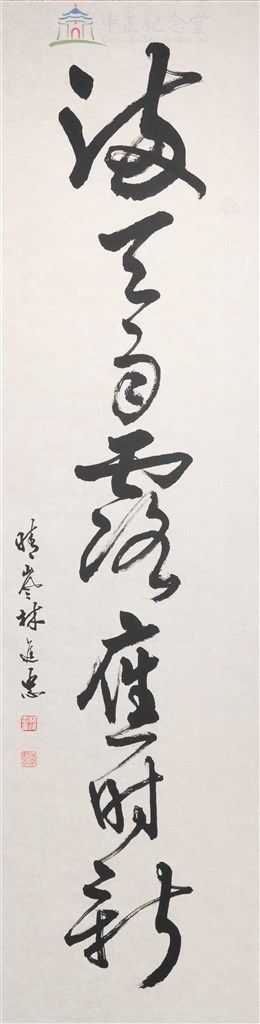 中正紀念堂
滿天雨露應時新
晴嵐林進忠